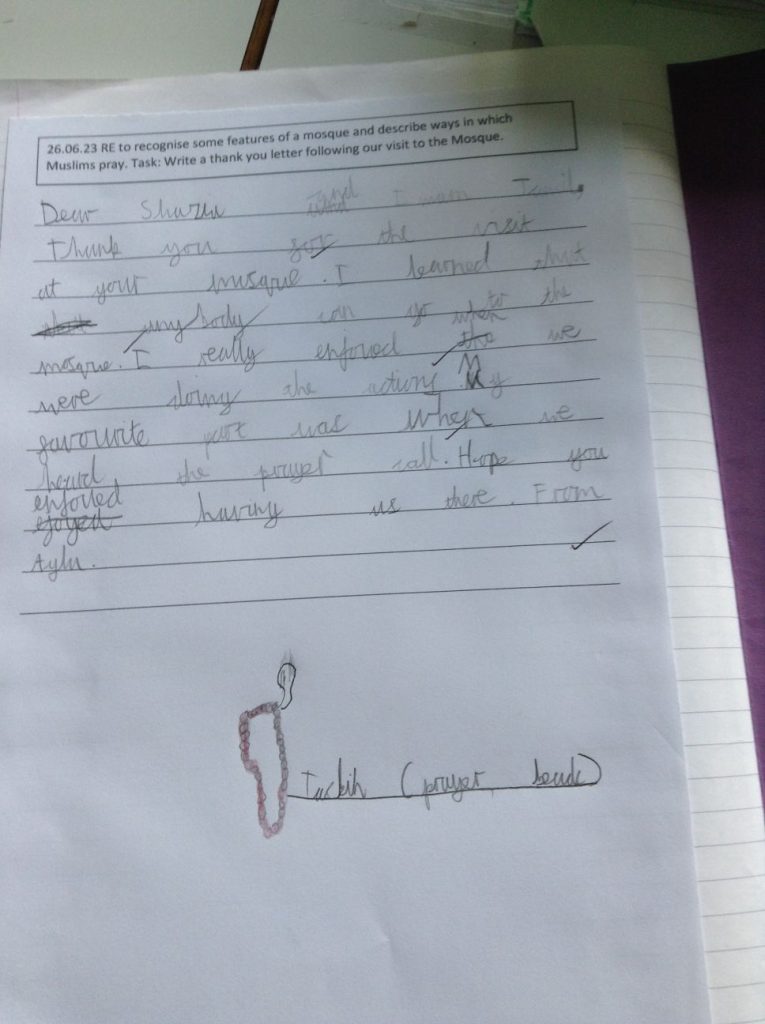 26.06.23 RE to recognise some features of a mosque and describe ways in which
Muslims pray. Task: Write a thank you letter following our visit to the Mosque.
Dear and Imam
Thank you for the visit
at your mosque. I learned that
anybody can go to the
mosque. I really enjoyed the we
were doing the actions My
favourite part was when we
heard the prayer call. Hope you
enjoyed
ejoyed having us there. From
Ayla.
(prayer beads)